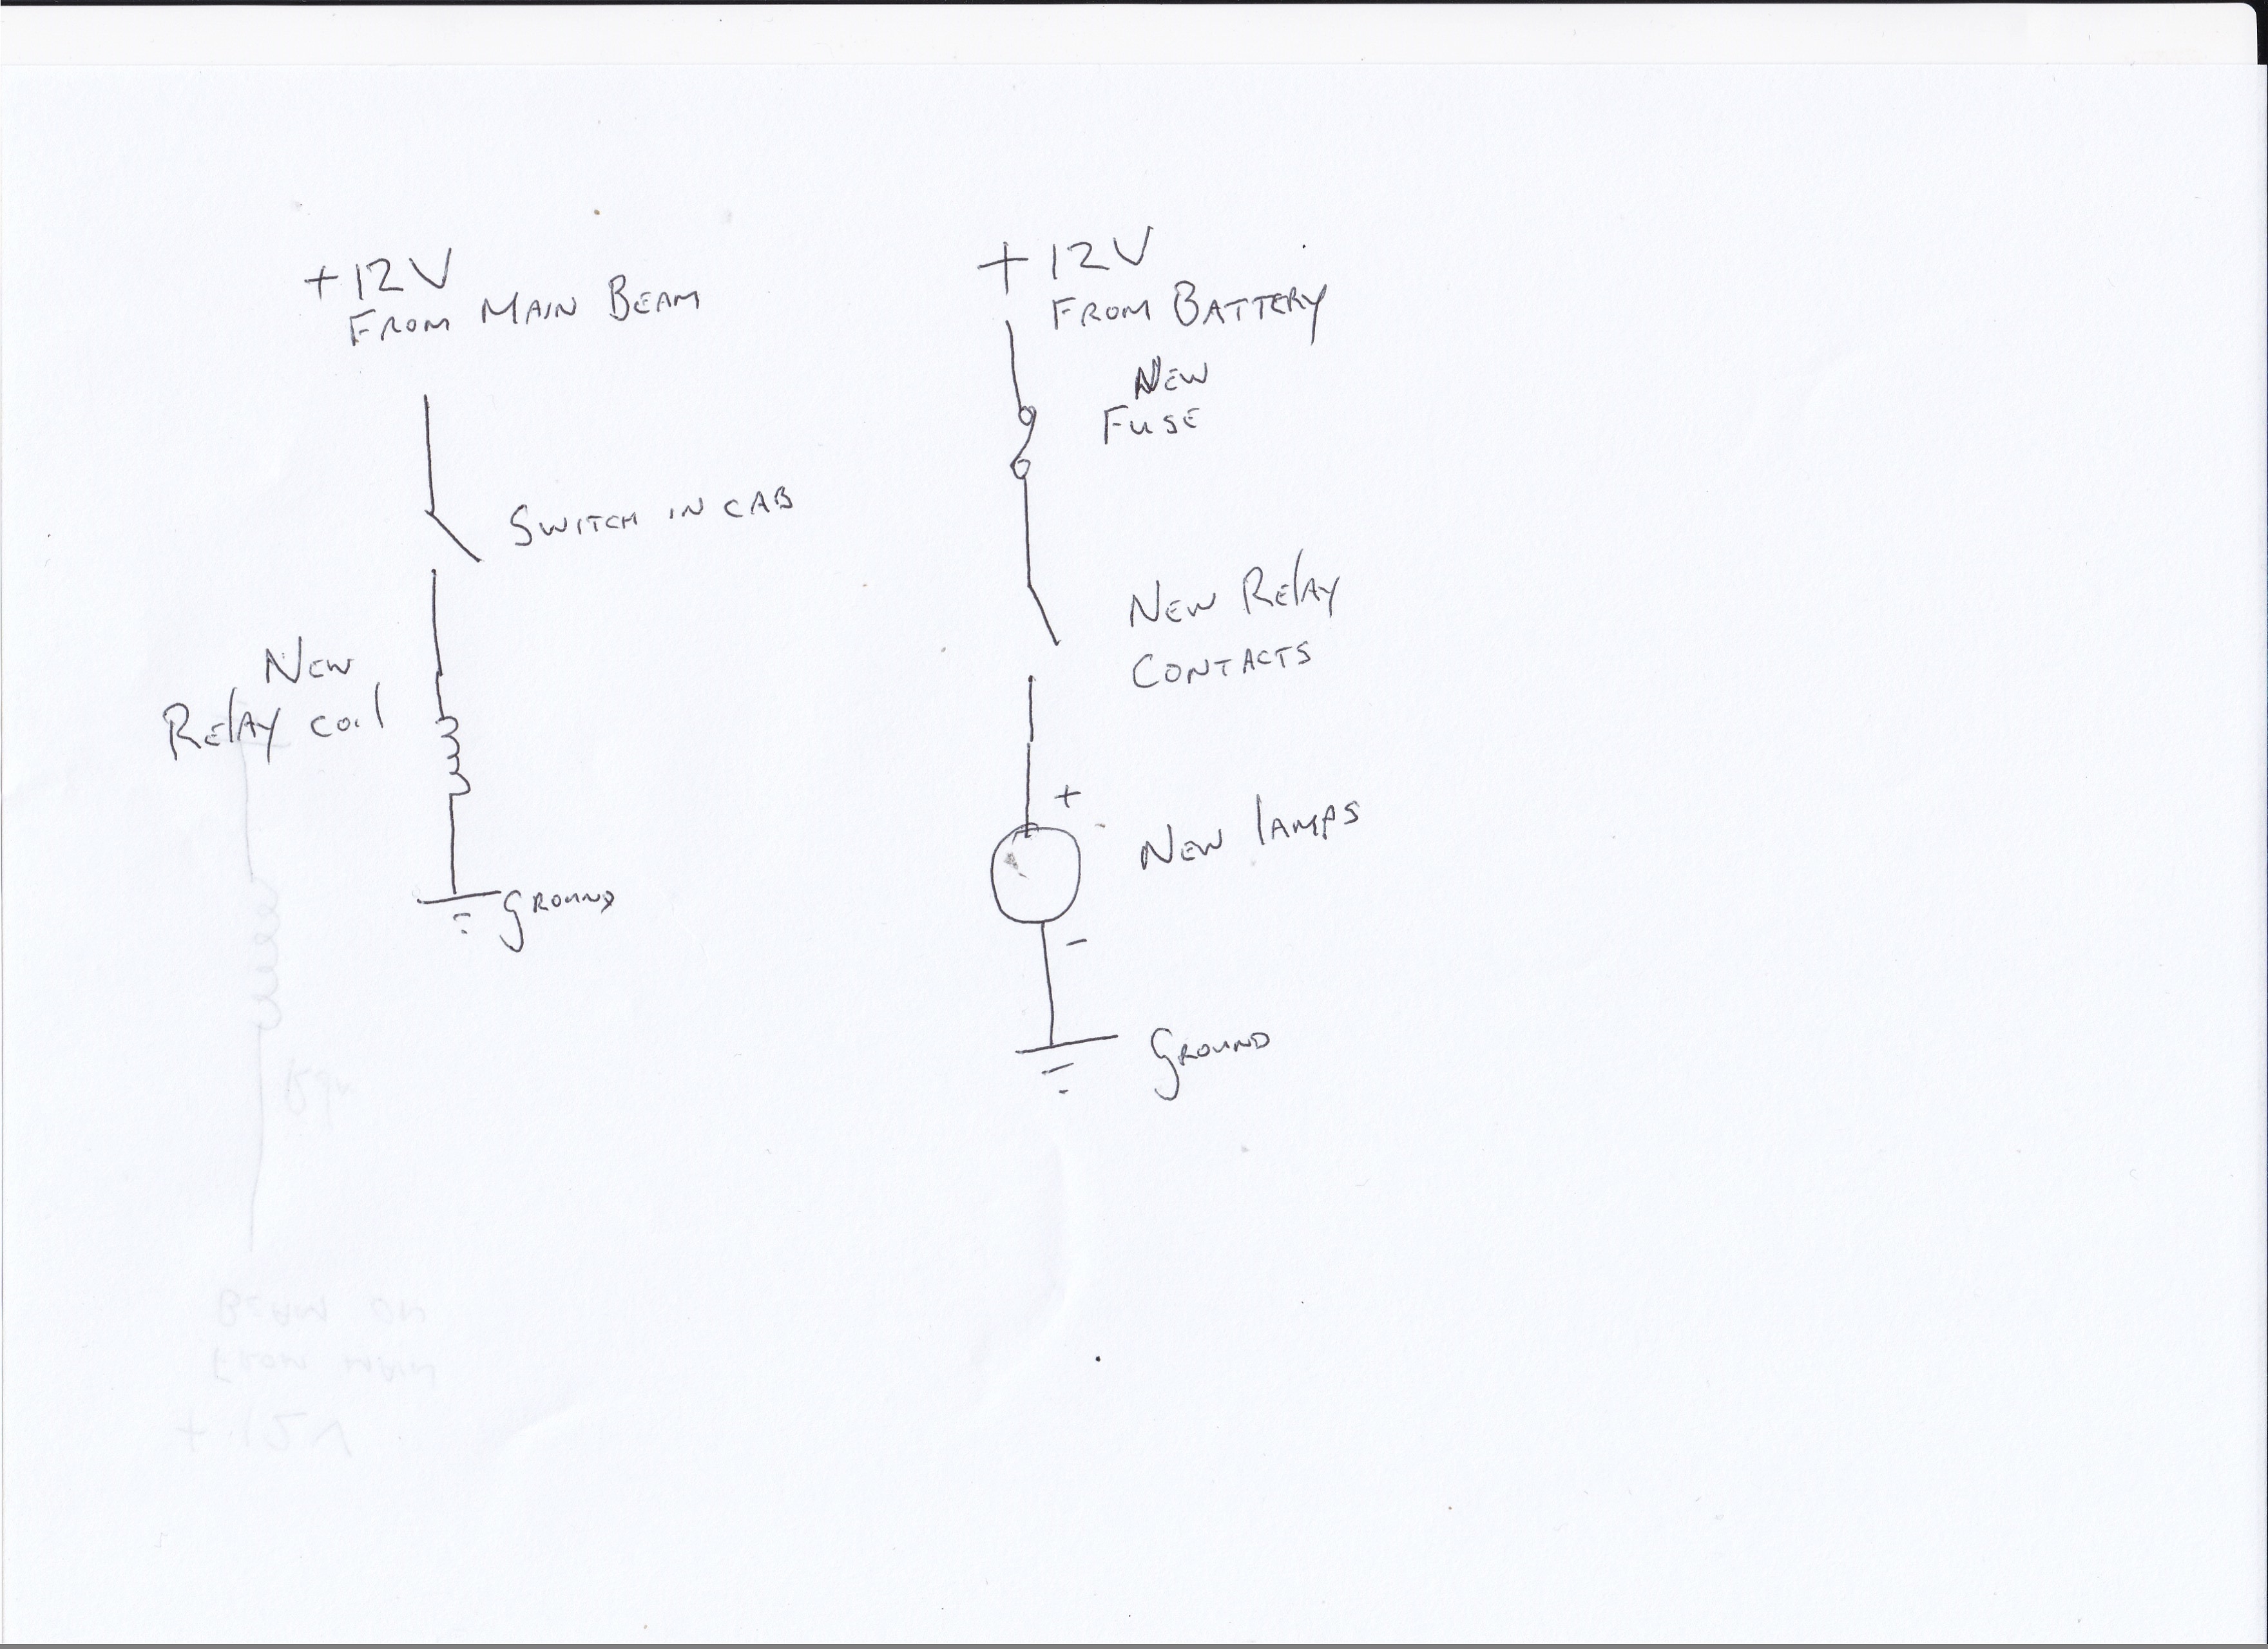 +12V
FROM MAIN BEAM
SWITCH IN CAB
NEW
RELAY COIL
GROUND
+12V
FROM BATTERY
NEW
FUSE
NEW RELAY
CONTACTS
+
NEW LAMPS
-
GROUND